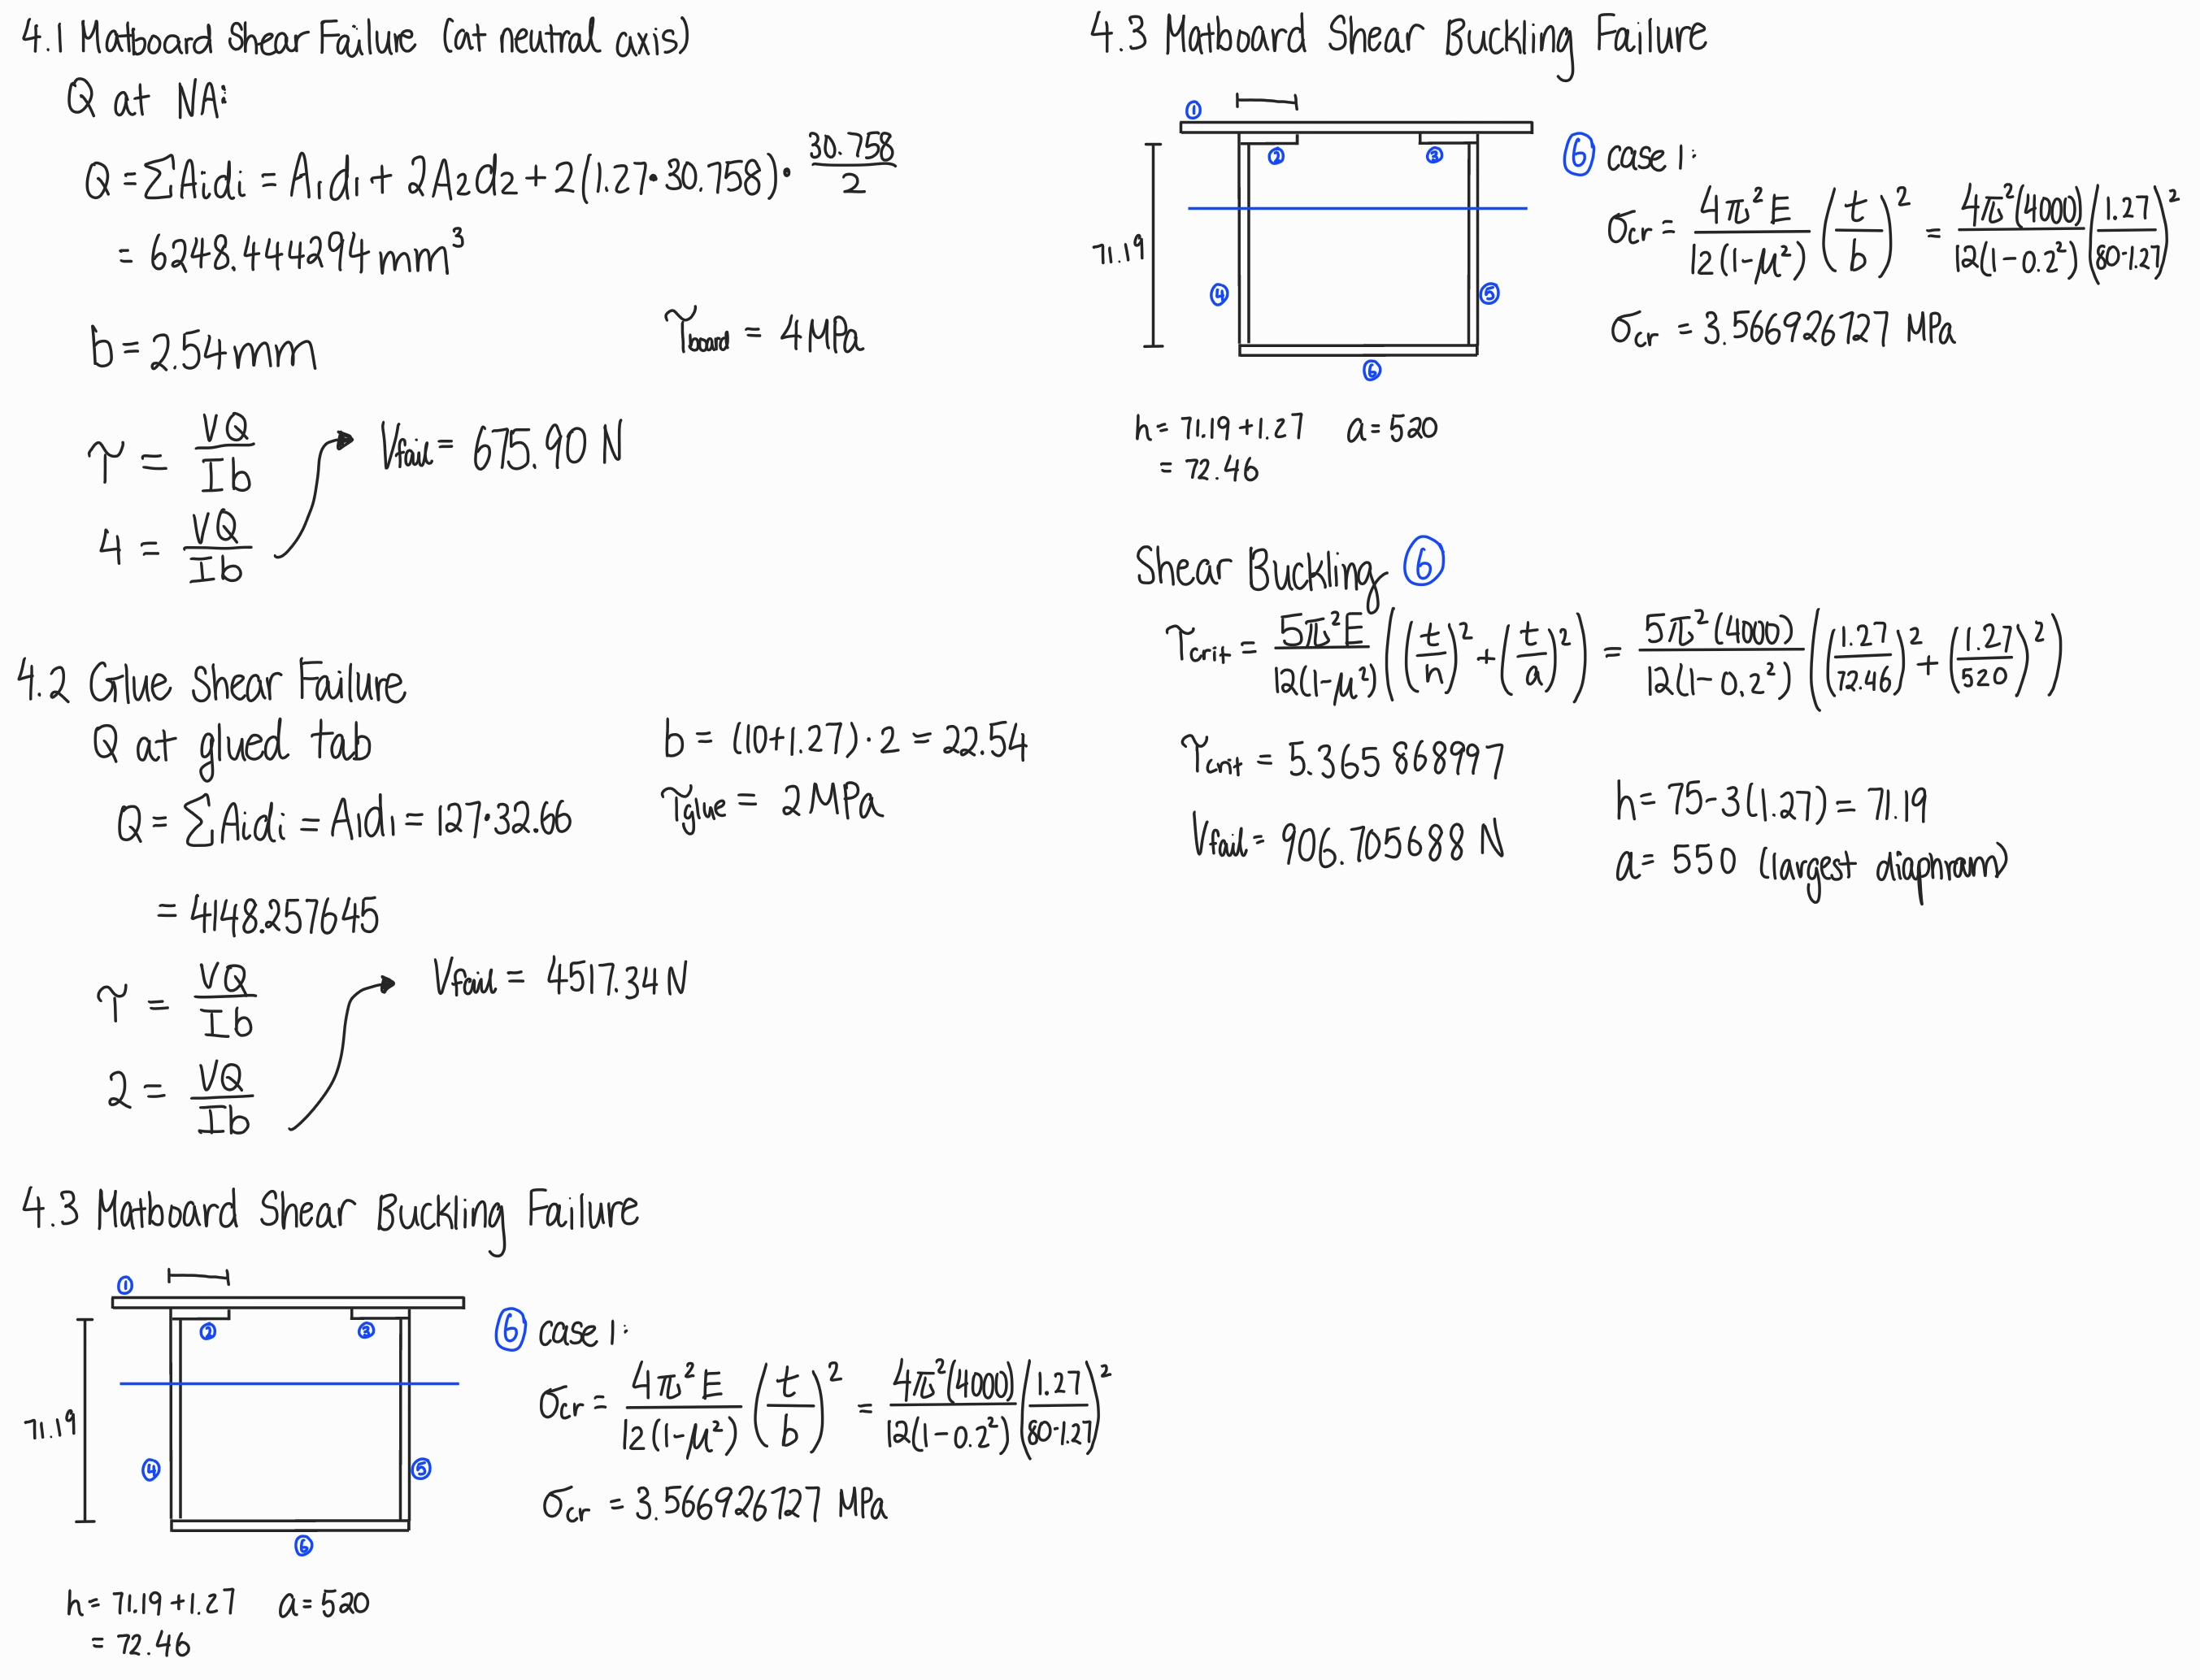 4.1 Matboard Shear Failure (at neutral axis)
Q at NA:
Q = ΣAidi = A₁d₁ + 2A₂d₂ + 2(1.27·30.758)· 30.758/2
= 6248.444294 mm³
b = 2.54 mm
τboard = 4 MPa
τ = VQ/Ib
Vfail = 675.90 N
4 = VQ/Ib
4.2 Glue Shear Failure
Q at glued tab
b = (10+1.27)·2 = 22.54
Q = ΣAidi = A₁d₁ = 127·32.66
τglue = 2 MPa
= 4148.257645
τ = VQ/Ib
Vfail = 4517.34 N
2 = VQ/Ib
4.3 Matboard Shear Buckling Failure
①
②
③
71.19
④
⑤
⑥
⑥ case 1:
σcr = 4π²E/12(1-μ²) (t/b)² = 4π²(4000)/12(1-0.2²) (1.27/80-1.27)²
σcr = 3.566926727 MPa
h = 71.19 + 1.27
a = 520
= 72.46
4.3 Matboard Shear Buckling Failure
①
②
③
71.19
④
⑤
⑥
⑥ case 1:
σcr = 4π²E/12(1-μ²) (t/b)² = 4π²(4000)/12(1-0.2²) (1.27/80-1.27)²
σcr = 3.566926727 MPa
h = 71.19 + 1.27
a = 520
= 72.46
Shear Buckling ⑥
τcrit = 5π²E/12(1-μ²) ((t/h)² + (t/a)²) = 5π²(4000)/12(1-0.2²) ((1.27/72.46)² + (1.27/520)²)
τcrit = 5.365868997
h = 75-3(1.27) = 71.19
Vfail = 906.705688 N
a = 550 (largest diaphram)